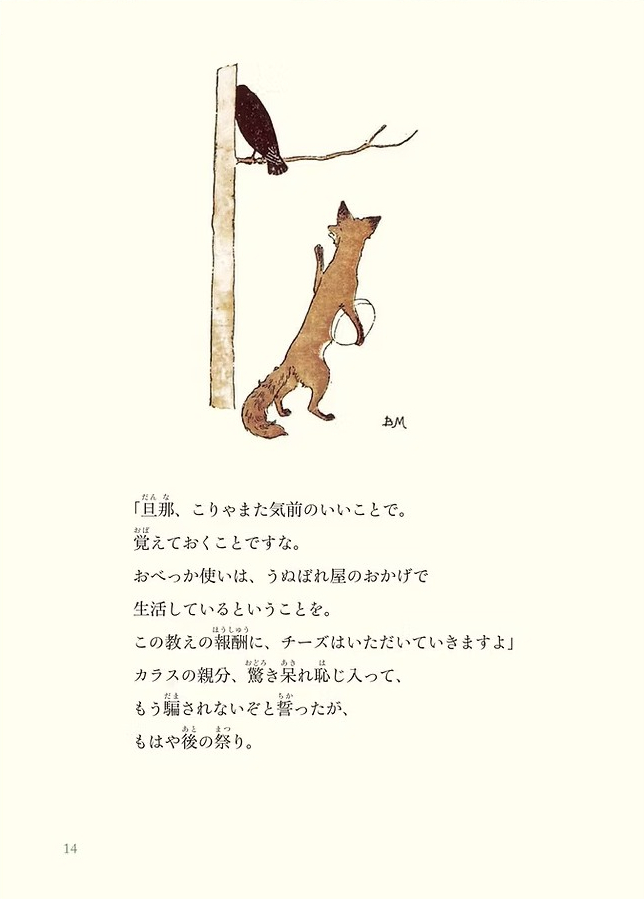 BM
「旦那、こりゃまた気前のいいことで。
覚えておくことですな。
おべっか使いは、うぬぼれ屋のおかげで
生活しているということを。
この教えの報酬に、チーズはいただいていきますよ」
カラスの親分、驚き呆れ恥じ入って、
もう騙されないぞと誓ったが、
もはや後の祭り。
14